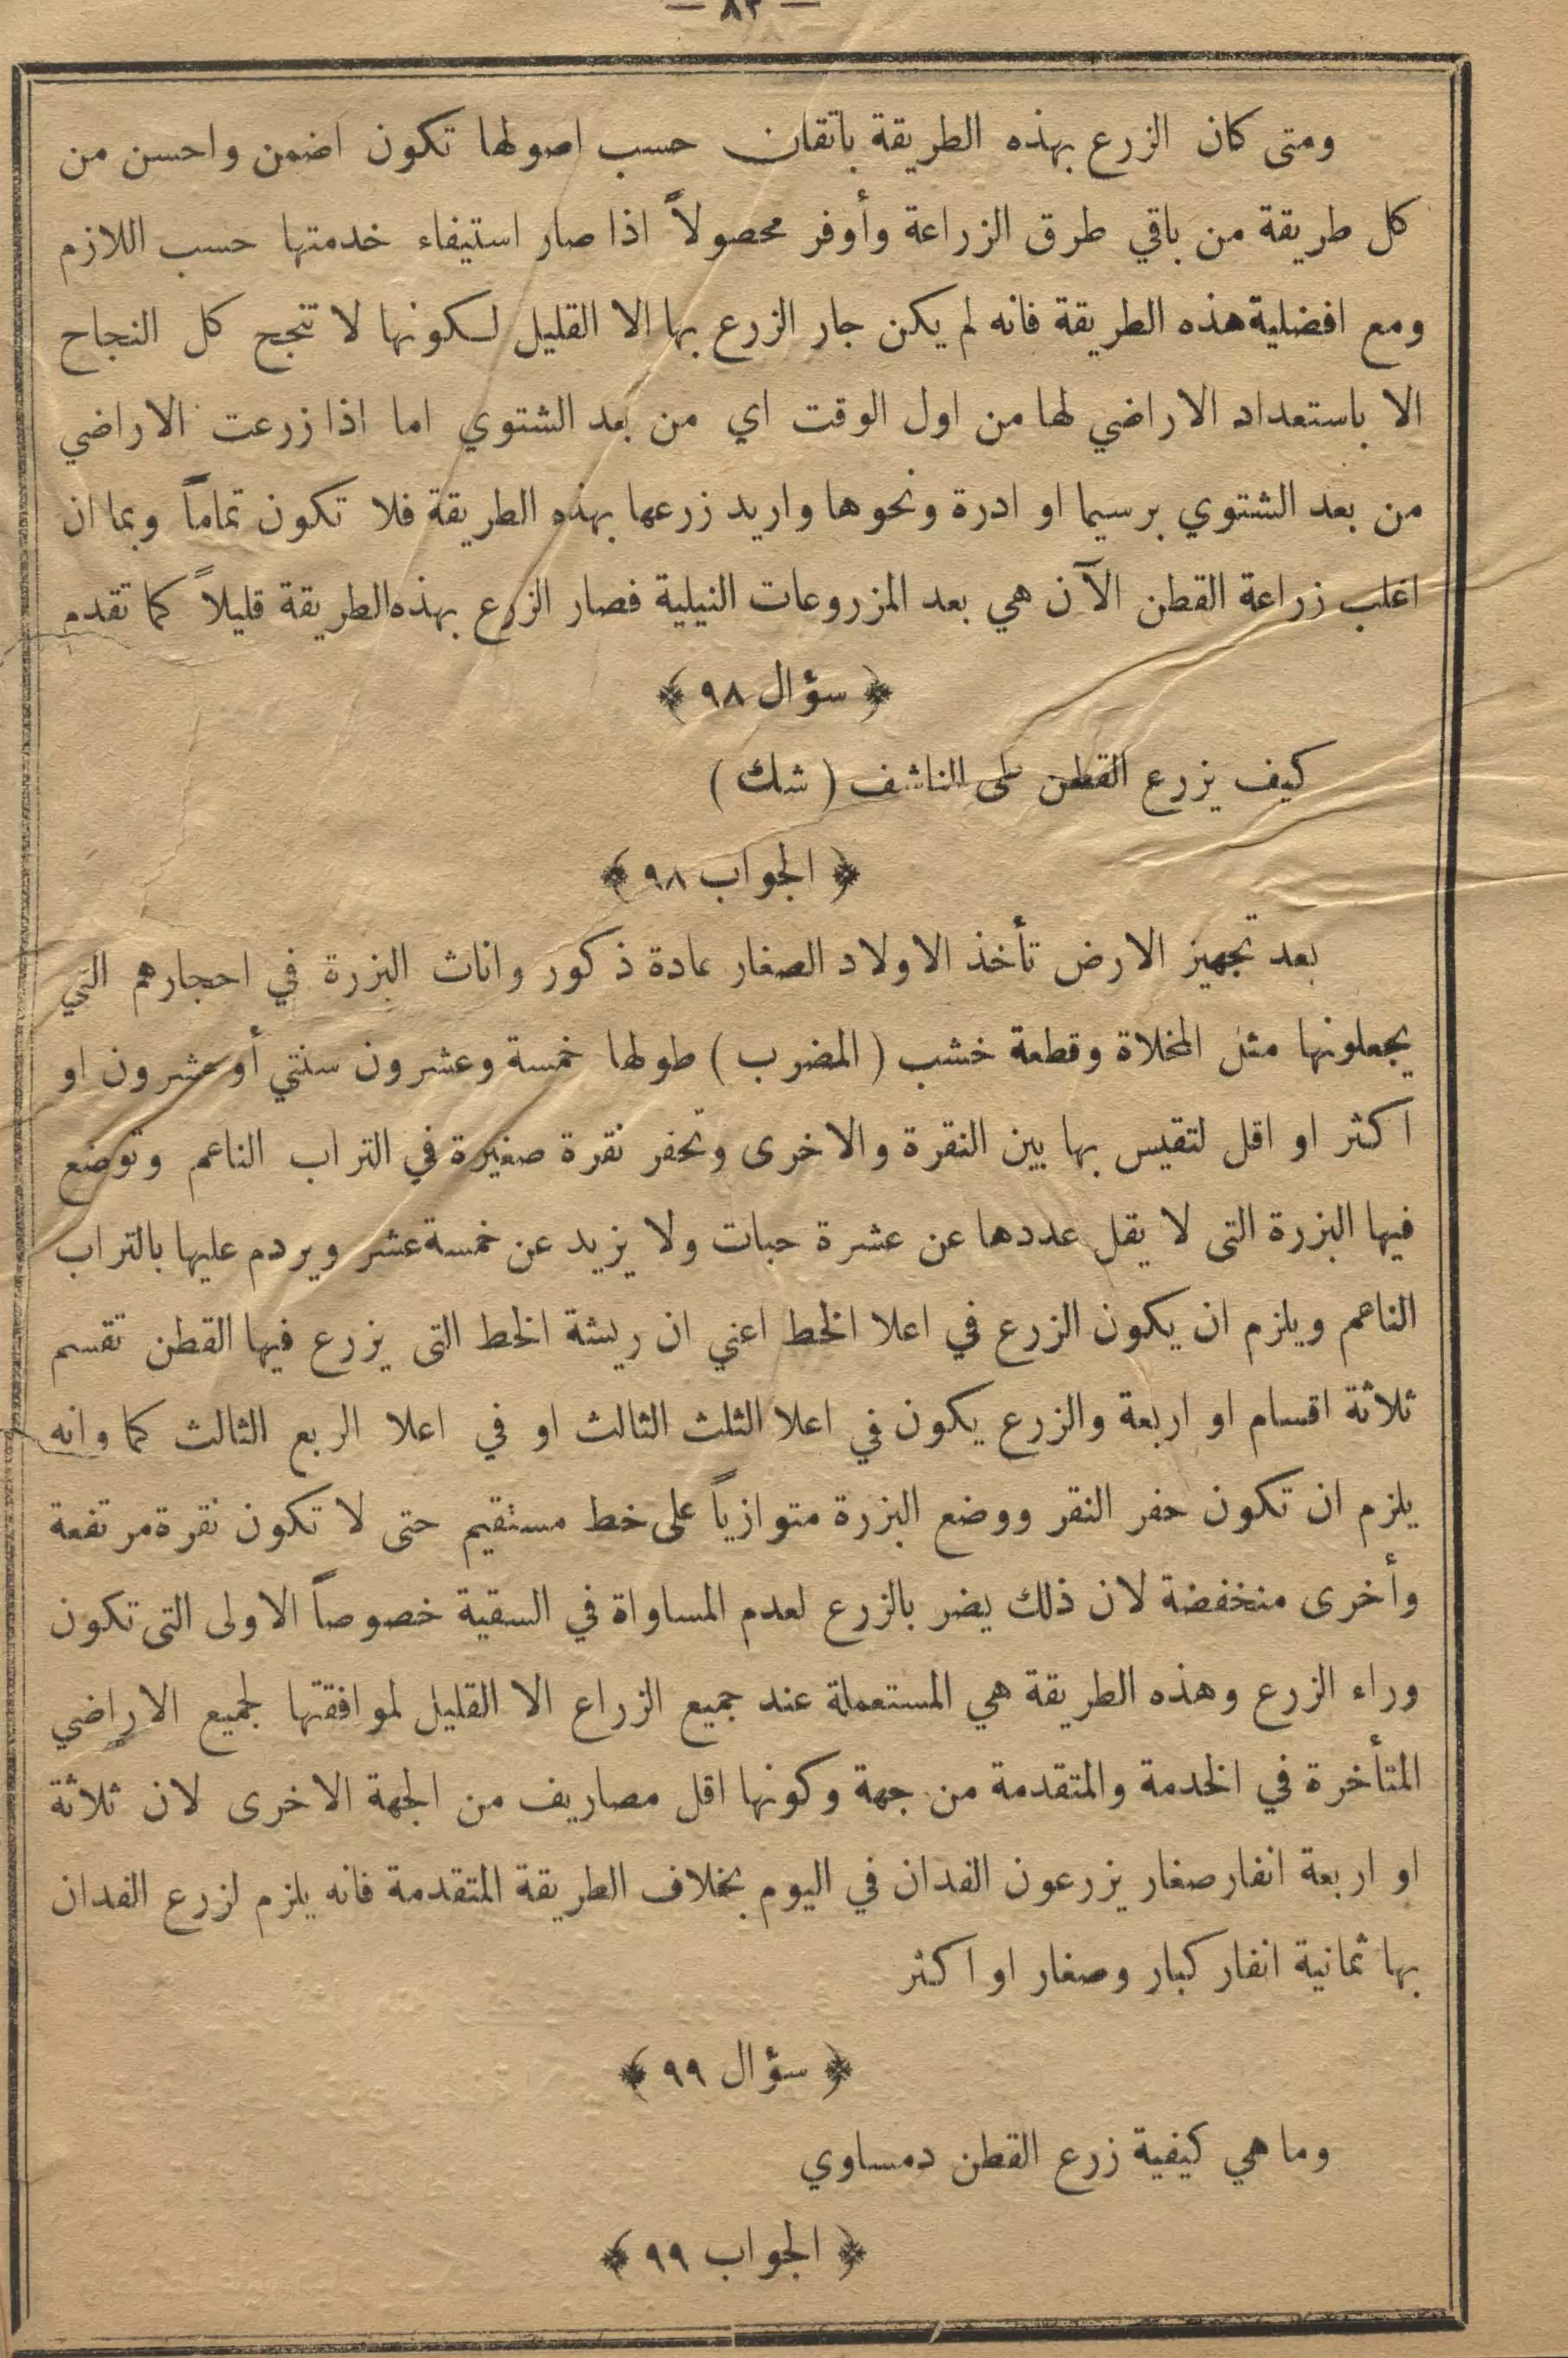 — ٨٣ —
ومتى كان الزرع بهذه الطريقة باتقان حسب اصولها تكون اضمن واحسن من
كل طريقة من باقي طرق الزراعة وأوفر محصولاً اذا صار استيفاء خدمتها حسب اللازم
ومع افضلية هذه الطريقة فانه لم يكن جار الزرع بها الا القليل لكونها لا تنجح كل النجاح
الا باستعداد الاراضي لها من اول الوقت اي من بعد الشتوي اما اذا زرعت الاراضي
من بعد الشتوي برسيما او ادرة ونحوها واريد زرعها بهذه الطريقة فلا تكون تماماً وبما ان
اغلب زراعة القطن الآن هي بعد المزروعات النيلية فصار الزرع بهذه الطريقة قليلاً كما تقدم
﴿ سؤال ٩٨ ﴾
كيف يزرع القطن على الناشف ( شك )
﴿ الجواب ٩٨ ﴾
بعد تجهيز الارض تأخذ الاولاد الصغار عادة ذكور واناث البزرة في احجارهم التي
يجعلونها مثل المخلاة وقطعة خشب ( المضرب ) طولها خمسة وعشرون سنتي أو عشرون او
اكثر او اقل لتقيس بها بين النقرة والاخرى وتحفر نقرة صغيرة في التراب الناعم وتوضع
فيها البزرة التى لا يقل عددها عن عشرة حبات ولا يزيد عن خمسة عشر ويردم عليها بالتراب
الناعم ويلزم ان يكون الزرع في اعلا الخط اعني ان ريشة الخط التى يزرع فيها القطن تقسم
ثلاثة اقسام او اربعة والزرع يكون في اعلا الثلث الثالث او في اعلا الربع الثالث كما وانه
يلزم ان تكون حفر النقر ووضع البزرة متوازياً على خط مستقيم حتى لا تكون نقرة مرتفعة
وأخرى منخفضة لان ذلك يضر بالزرع لعدم المساواة في السقية خصوصاً الاولى التى تكون
وراء الزرع وهذه الطريقة هي المستعملة عند جميع الزراع الا القليل لموافقتها لجميع الاراضي
المتأخرة في الخدمة والمتقدمة من جهة وكونها اقل مصاريف من الجهة الاخرى لان ثلاثة
او اربعة انفار صغار يزرعون الفدان في اليوم بخلاف الطريقة المتقدمة فانه يلزم لزرع الفدان
بها ثمانية انفار كبار وصغار او اكثر
﴿ سؤال ٩٩ ﴾
وما هي كيفية زرع القطن دمساوي
﴿ الجواب ٩٩ ﴾